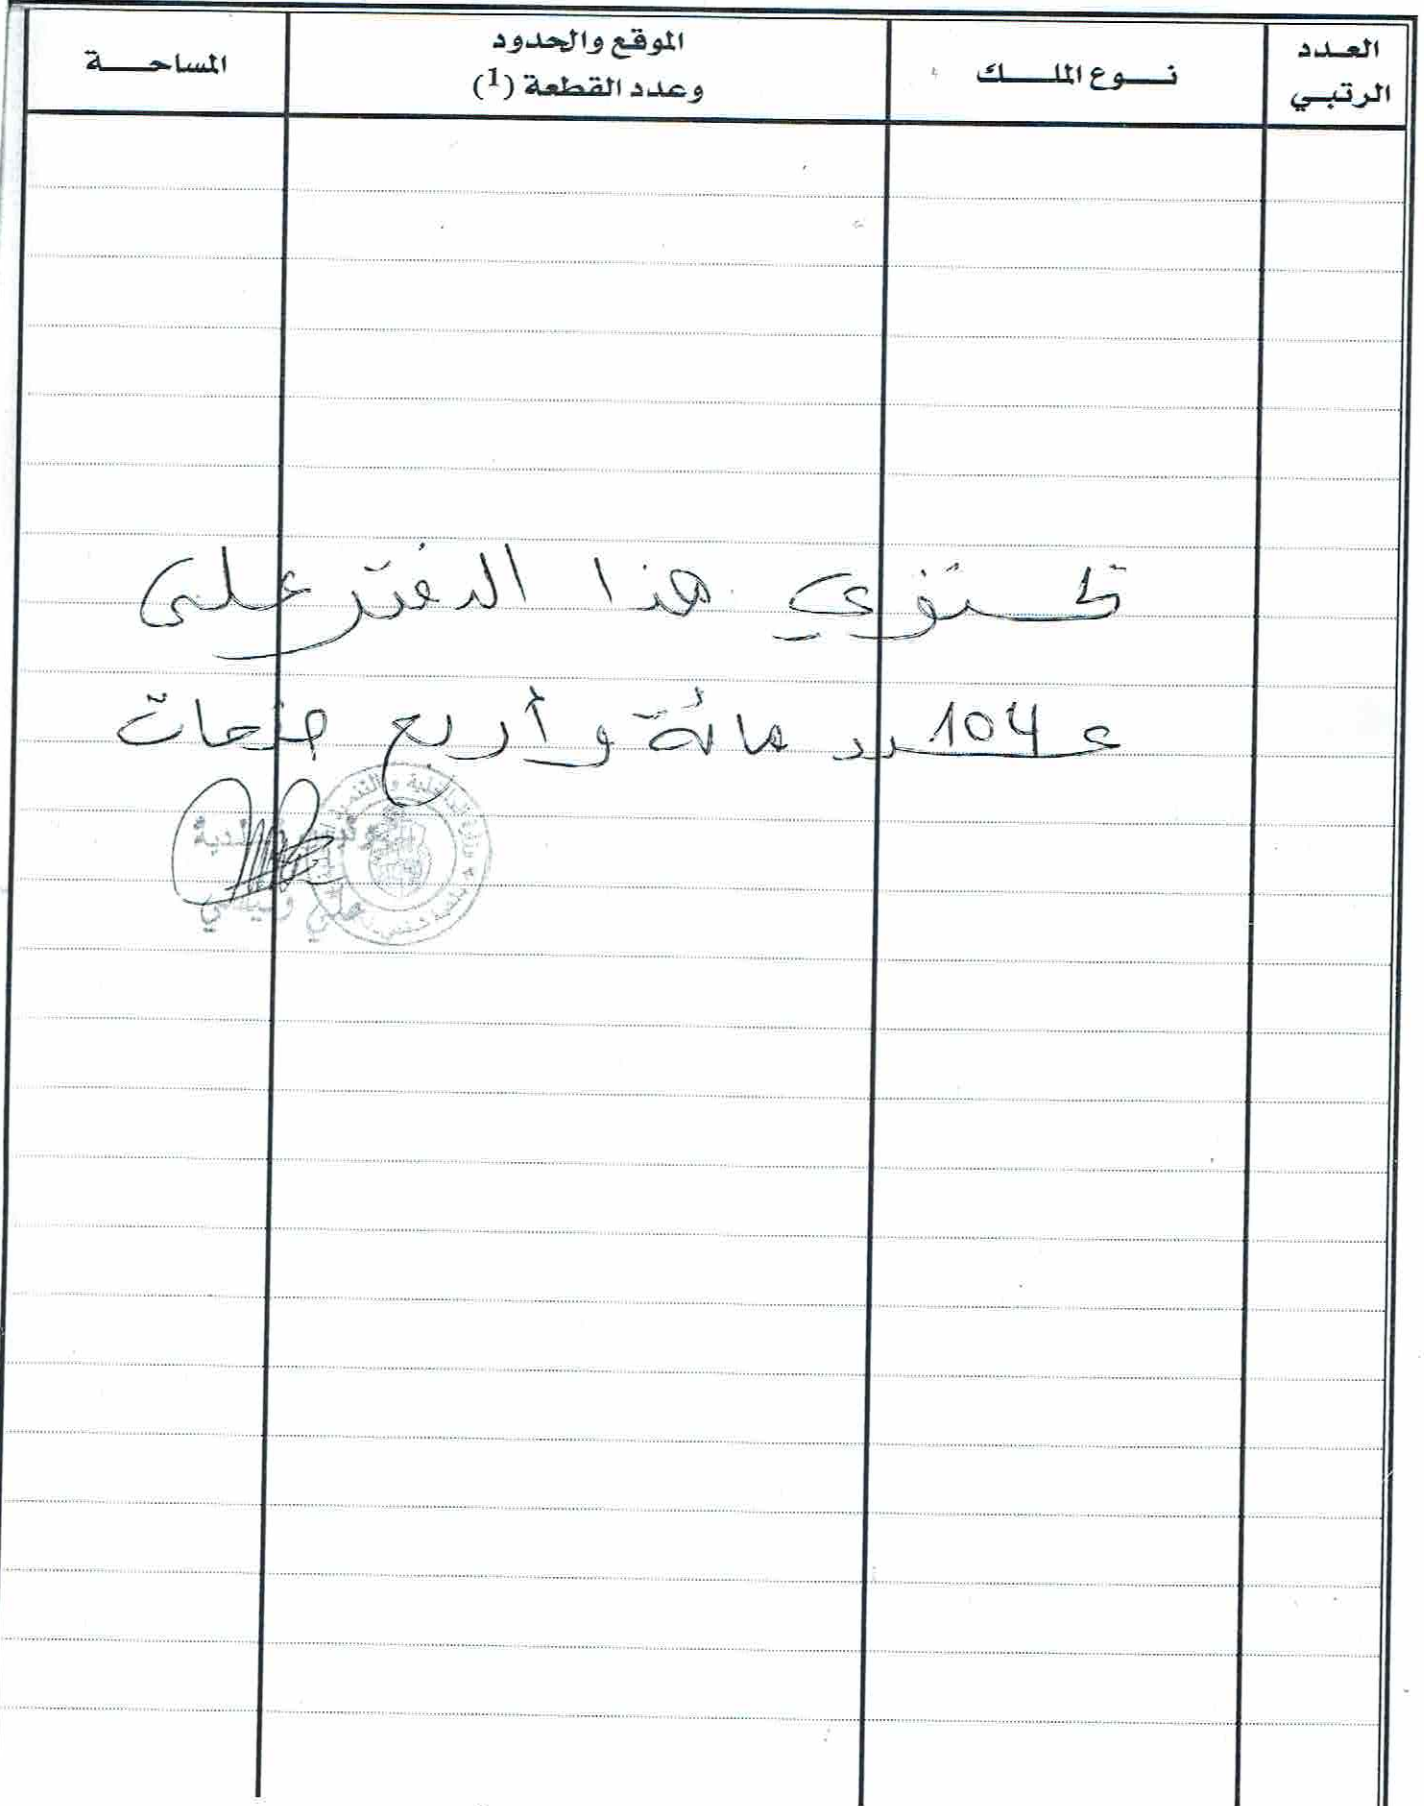 العدد الرتبي
نوع الملك
الموقع والحدود
وعدد القطعة (1)
المساحة
تحتوي هذا الدفتر على
عـ104ـدد مائة وأربع صفحات